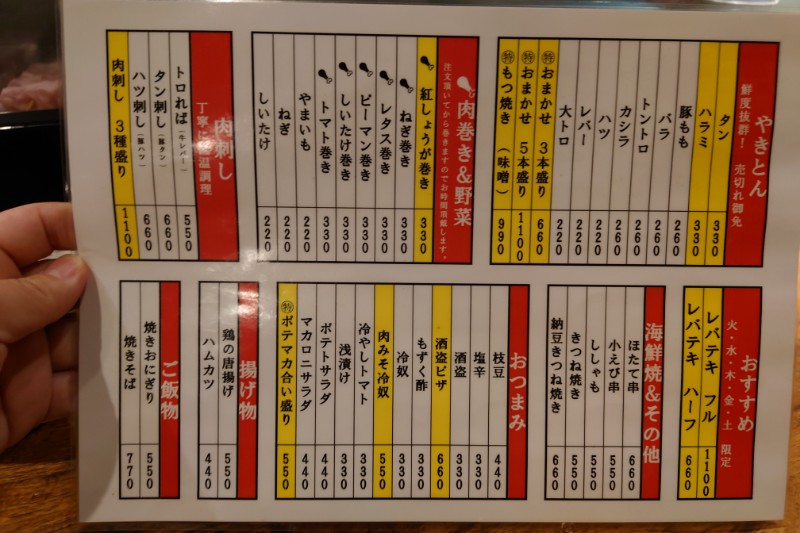 やきとん
鮮度抜群! 売切れ御免
タン 330
ハラミ 330
豚もも 260
バラ 260
トントロ 260
カシラ 260
ハツ 220
レバー 220
大トロ 220
特 おまかせ 3本盛り 660
特 おまかせ 5本盛り 1100
特 もつ焼き (味噌) 990
肉巻き&野菜
注文頂いてから巻きますのでお時間頂戴します。
紅しょうが巻き 330
ねぎ巻き 330
レタス巻き 330
ピーマン巻き 330
しいたけ巻き 330
トマト巻き 330
やまいも 220
ねぎ 220
しいたけ 220
肉刺し
丁寧に低温調理
トロればー(牛レバー) 550
タン刺し(豚タン) 660
ハツ刺し(豚ハツ) 660
肉刺し 3種盛り 1100
おすすめ
火・水・木・金・土 限定
レバテキ フル 1100
レバテキ ハーフ 660
海鮮焼&その他
ほたて串 660
小えび串 550
ししゃも 550
きつね焼き 550
納豆きつね焼き 660
おつまみ
枝豆 440
塩辛 330
酒盗 330
酒盗ピザ 660
もずく酢 330
冷奴 330
肉みそ冷奴 550
冷やしトマト 330
浅漬け 330
ポテトサラダ 440
マカロニサラダ 440
特 ポテマカ合い盛り 550
揚げ物
鶏の唐揚げ 550
ハムカツ 440
ご飯物
焼きおにぎり 550
焼きそば 770